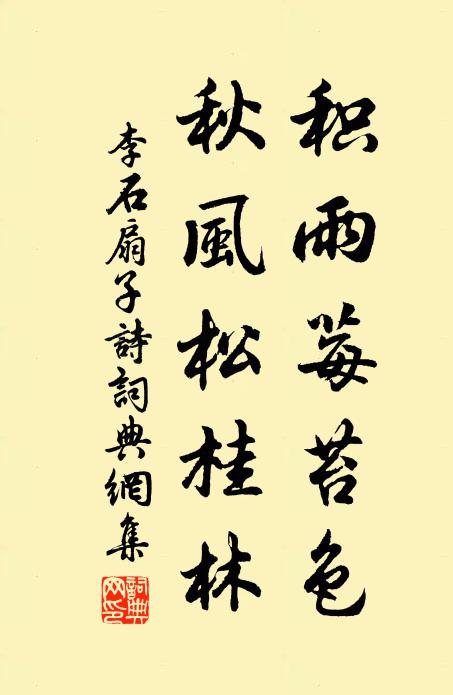 积雨莓苔色
秋風松桂林
李石扇子詩詞典網集
詞典網印